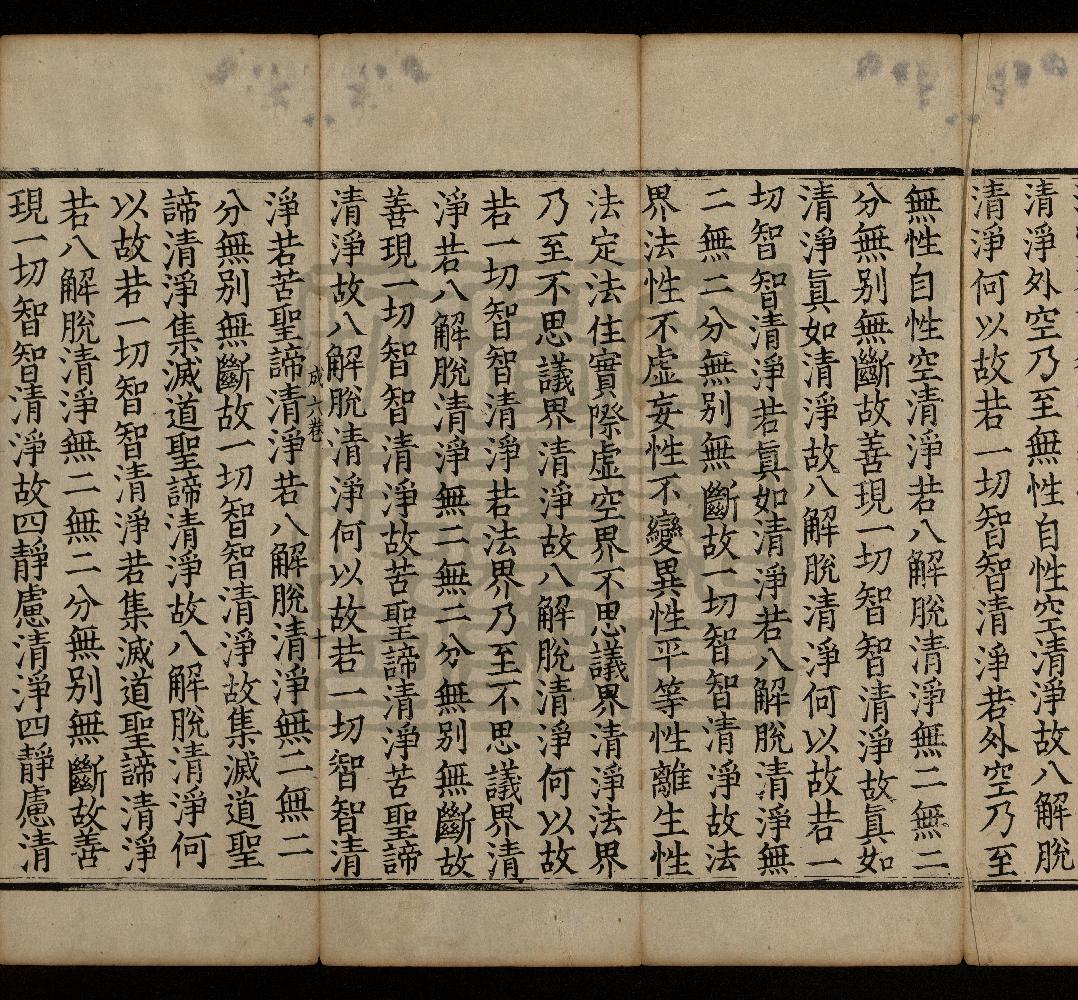 清淨外空乃至無性自性空清淨故八解脫
清淨何以故若一切智智清淨若外空乃至
無性自性空清淨若八解脫清淨無二無二
分無別無斷故善現一切智智清淨故真如
清淨真如清淨故八解脫清淨何以故若一
切智智清淨若真如清淨若八解脫清淨無
二無二分無別無斷故一切智智清淨故法
界法性不虛妄性不變異性平等性離生性
法定法住實際虛空界不思議界清淨法界
乃至不思議界清淨故八解脫清淨何以故
若一切智智清淨若法界乃至不思議界清
淨若八解脫清淨無二無二分無別無斷故
善現一切智智清淨故苦聖諦清淨苦聖諦
清淨故八解脫清淨何以故若一切智智清
成六卷 十
淨若苦聖諦清淨若八解脫清淨無二無二
分無別無斷故一切智智清淨故集滅道聖
諦清淨集滅道聖諦清淨故八解脫清淨何
以故若一切智智清淨若集滅道聖諦清淨
若八解脫清淨無二無二分無別無斷故善
現一切智智清淨故四靜慮清淨四靜慮清